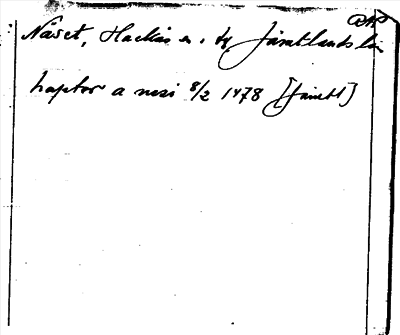 DN
Näset, Hackås sn. Jämtlands län
haptor a nesi 8/2 1478 [Jämtl]